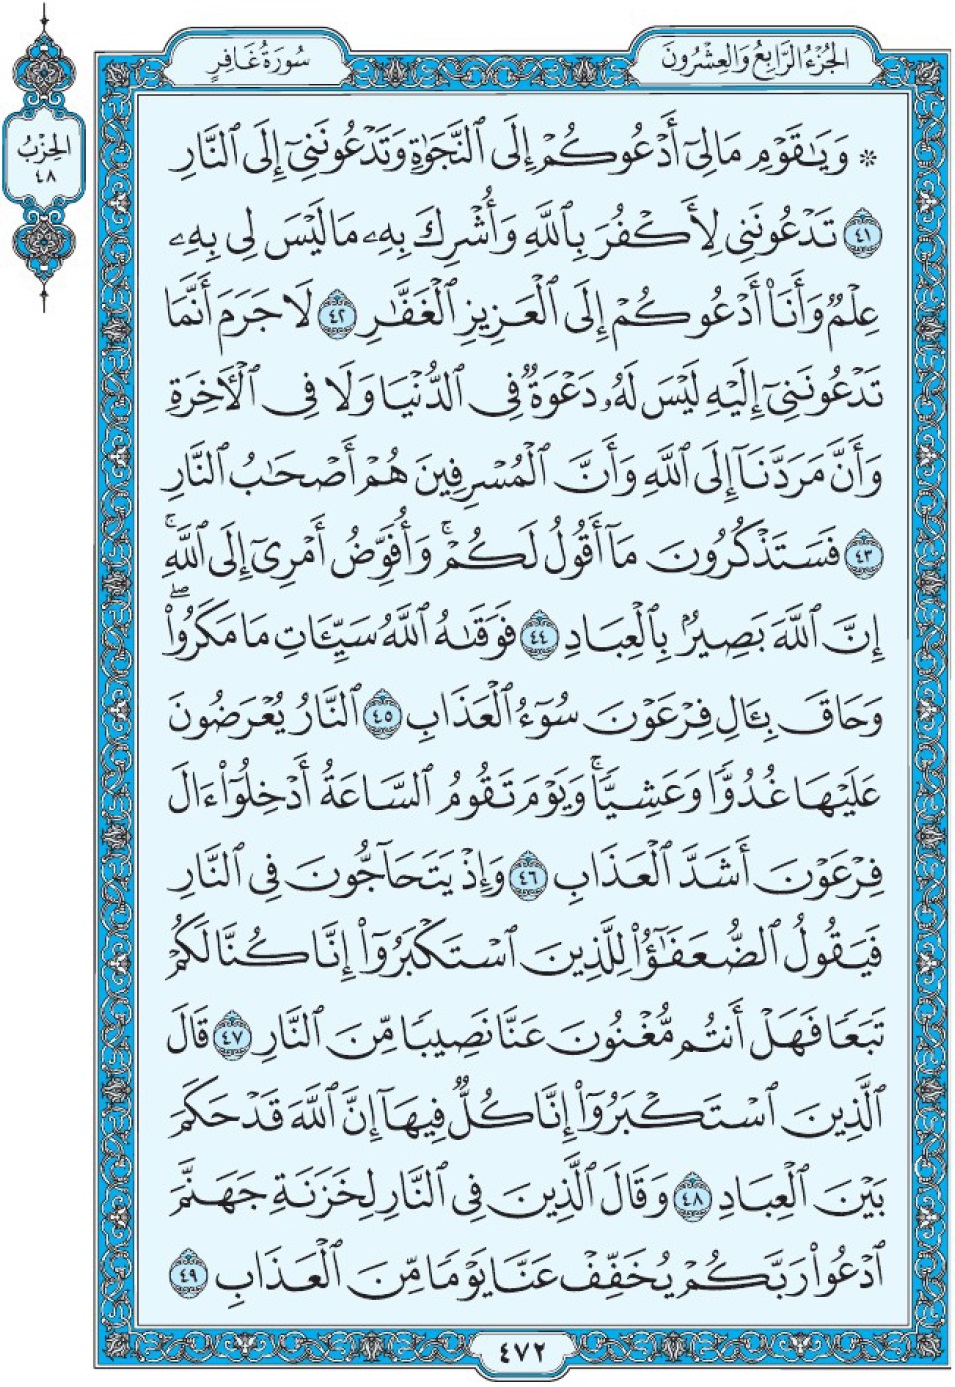 سُورَةُ غَافِرٍ
الجُزْءُ الرَّابِعُ وَالعِشْرُونَ
الحِزْبُ
٤٨
۞ وَيَٰقَوْمِ مَا لِيٓ أَدْعُوكُمْ إِلَى ٱلنَّجَوٰةِ وَتَدْعُونَنِيٓ إِلَى ٱلنَّارِ
٤١ تَدْعُونَنِي لِأَكْفُرَ بِٱللَّهِ وَأُشْرِكَ بِهِۦ مَا لَيْسَ لِي بِهِۦ
عِلْمٌ وَأَنَا۠ أَدْعُوكُمْ إِلَى ٱلْعَزِيزِ ٱلْغَفَّٰرِ ٤٢ لَا جَرَمَ أَنَّمَا
تَدْعُونَنِيٓ إِلَيْهِ لَيْسَ لَهُۥ دَعْوَةٌ فِي ٱلدُّنْيَا وَلَا فِي ٱلْأٓخِرَةِ
وَأَنَّ مَرَدَّنَآ إِلَى ٱللَّهِ وَأَنَّ ٱلْمُسْرِفِينَ هُمْ أَصْحَٰبُ ٱلنَّارِ
٤٣ فَسَتَذْكُرُونَ مَآ أَقُولُ لَكُمْۚ وَأُفَوِّضُ أَمْرِيٓ إِلَى ٱللَّهِۚ
إِنَّ ٱللَّهَ بَصِيرٌۢ بِٱلْعِبَادِ ٤٤ فَوَقَىٰهُ ٱللَّهُ سَيِّـَٔاتِ مَا مَكَرُوا۟ۖ
وَحَاقَ بِـَٔالِ فِرْعَوْنَ سُوٓءُ ٱلْعَذَابِ ٤٥ ٱلنَّارُ يُعْرَضُونَ
عَلَيْهَا غُدُوًّا وَعَشِيًّاۚ وَيَوْمَ تَقُومُ ٱلسَّاعَةُ أَدْخِلُوٓا۟ ءَالَ
فِرْعَوْنَ أَشَدَّ ٱلْعَذَابِ ٤٦ وَإِذْ يَتَحَآجُّونَ فِي ٱلنَّارِ
فَيَقُولُ ٱلضُّعَفَٰٓؤُا۟ لِلَّذِينَ ٱسْتَكْبَرُوٓا۟ إِنَّا كُنَّا لَكُمْ
تَبَعًا فَهَلْ أَنتُم مُّغْنُونَ عَنَّا نَصِيبًا مِّنَ ٱلنَّارِ ٤٧ قَالَ
ٱلَّذِينَ ٱسْتَكْبَرُوٓا۟ إِنَّا كُلٌّ فِيهَآ إِنَّ ٱللَّهَ قَدْ حَكَمَ
بَيْنَ ٱلْعِبَادِ ٤٨ وَقَالَ ٱلَّذِينَ فِي ٱلنَّارِ لِخَزَنَةِ جَهَنَّمَ
ٱدْعُوا۟ رَبَّكُمْ يُخَفِّفْ عَنَّا يَوْمًا مِّنَ ٱلْعَذَابِ ٤٩
٤٧٢